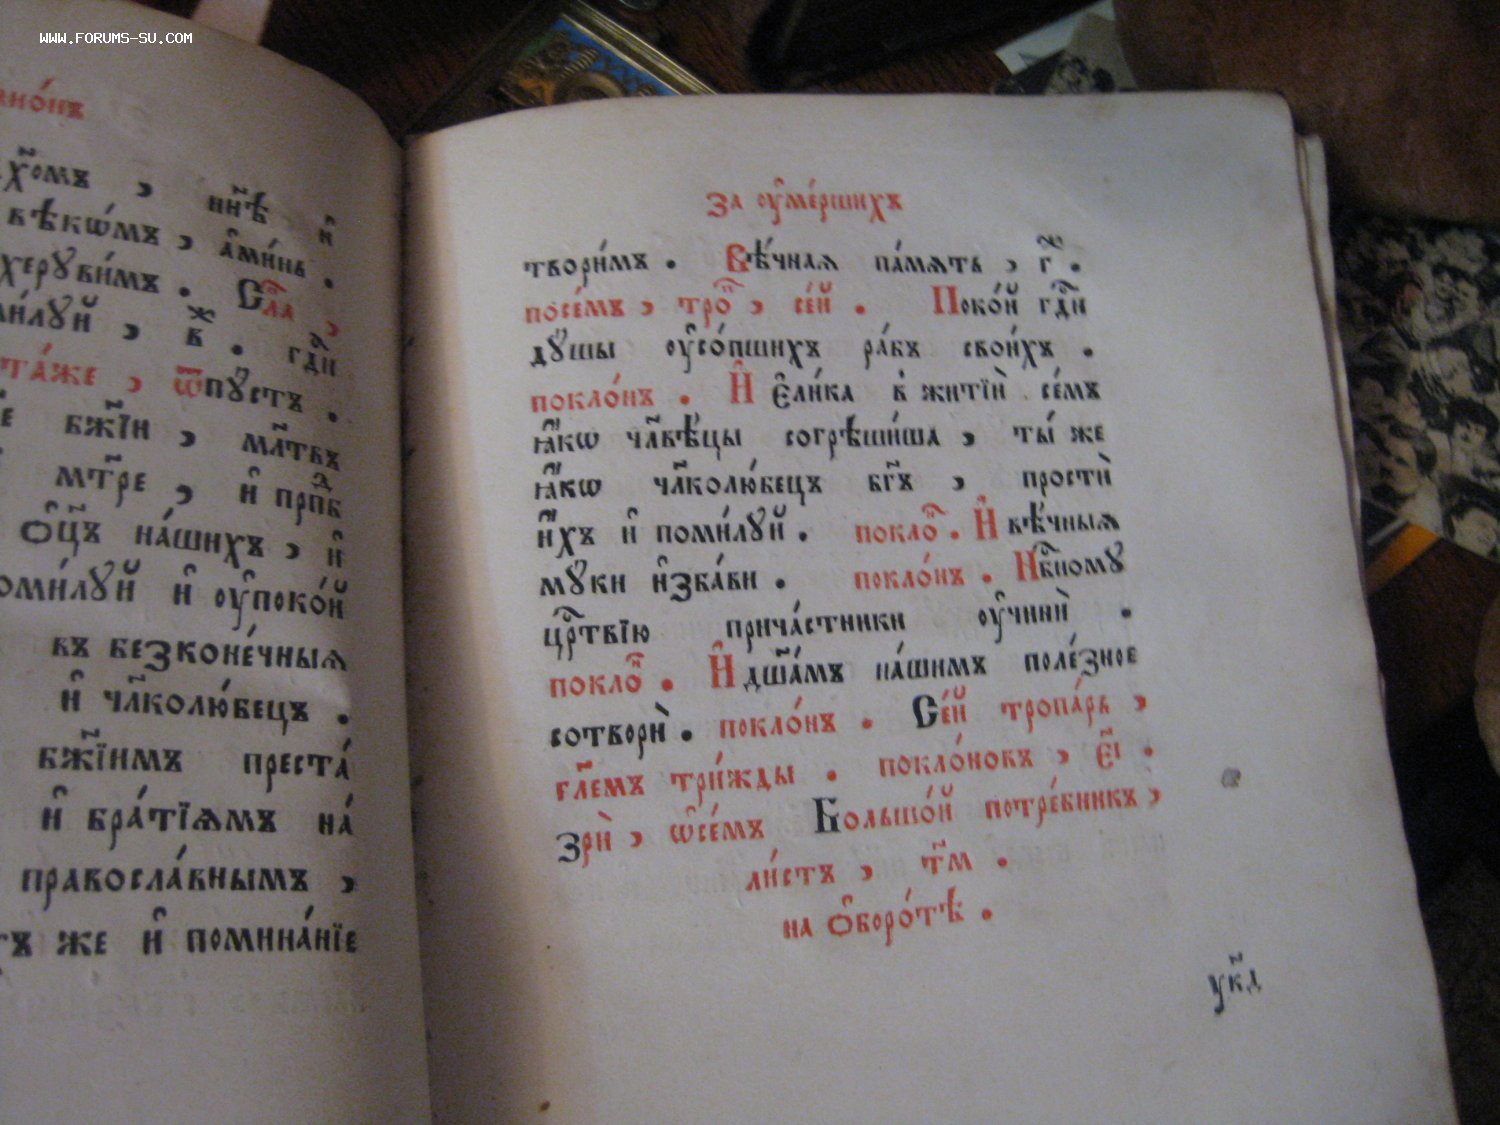 WWW.FORUMS-SU.COM
нн҃ѣ и҆
вѣкѡ́мъ , а҆ми́нь .
херꙋви́мъ . Сла̀ ,
в҃ж . гд҃и
та́же , ѿпꙋстъ .
бж҃їи , мл҃твъ
мт҃ре , и҆ прпⷣб
о҆ц҃ъ на́шихъ , и҆
и҆ оу҆поко́й
въ безконе́чныѧ
и҆ чл҃колю́бецъ .
бж҃їимъ преста́
и҆ бра́тїѧмъ на́
правосла́внымъ ,
же и҆ помина́нїе
За оу҆ме́ршихъ
твори́мъ . Вѣ́чнаѧ па́мѧть , г҃ж .
посе́мъ , тропⷬ҇ , се́й . Поко́й гд҃и
дꙋ́шы оу҆со́пшихъ ра́бъ свои́хъ .
покло́нъ . И҆ є҆ли́ка в житїѝ се́мъ
ꙗ҆́кѡ чл҃вѣ́цы согрѣши́ша , ты́ же
ꙗ҆́кѡ чл҃колю́бецъ бг҃ъ , простѝ
и҆̀хъ и҆ поми́лꙋй . поклоⷩ҇ . И҆ вѣ́чныѧ
мꙋ́ки и҆зба́ви . покло́нъ . Нбⷭ҇номꙋ
црⷭ҇твїю прича́стники оу҆чинѝ .
поклоⷩ҇ . И҆ дш҃а́мъ на́шимъ поле́зное
сотворѝ . покло́нъ . Се́й тропа́рь ,
гл҃емъ три́жды . покло́новъ , є҃і .
Зрѝ , ѡ҆се́мъ Большо́й потре́бникъ ,
ли́стъ , тм҃ .
на о҆боро́тѣ .
ук҃д